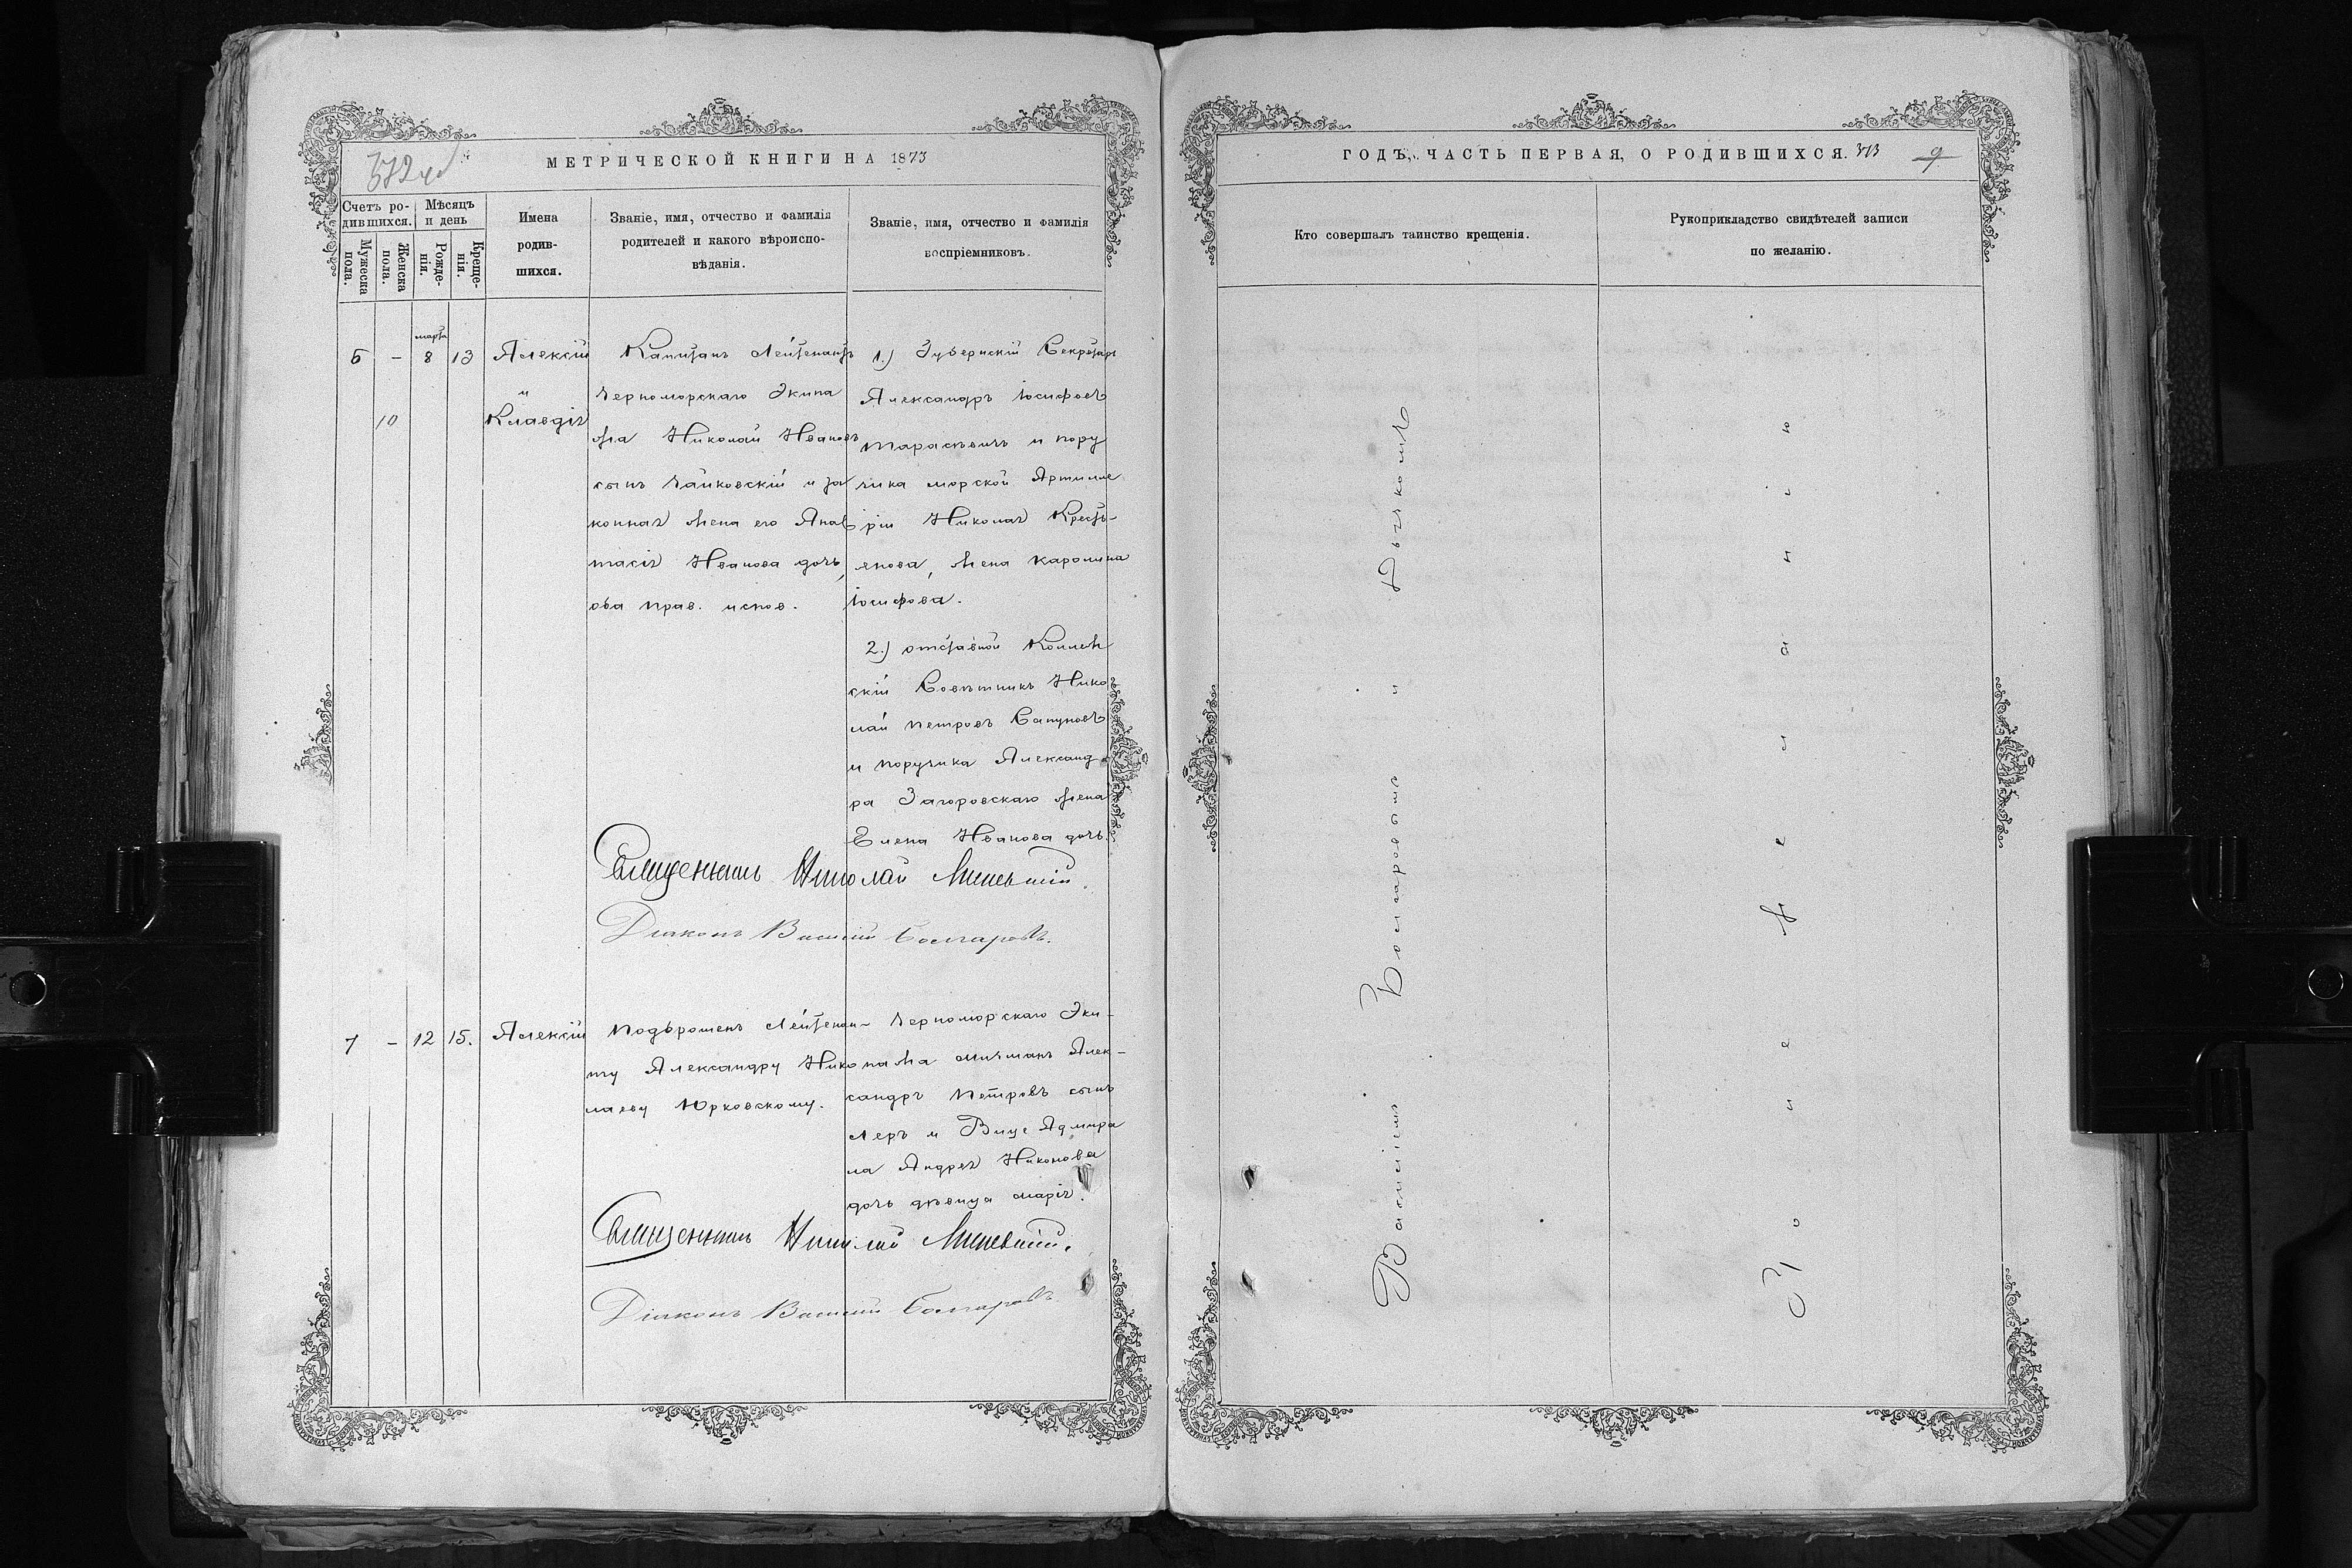 МЕТРИЧЕСКОЙ КНИГИ НА 1873
Счетъ ро-
дившихся.
Мѣсяцъ
и день
Мужеска
пола.
Женска
пола.
Рожде-
нія.
Креще-
нія.
Имена
родив-
шихся.
Званіе, имя, отчество и фамилія
родителей и какого вѣроиспо-
вѣданія.
Званіе, имя, отчество и фамилія
воспріемниковъ.
марта
6 – 8 13
10
Алексій
и
Клавдія
Капитанъ Лейтенантъ
Черноморскаго Экипа
жа Николай Ивановъ
сынъ Чайковскій и за
конная жена его Анас
тасія Иванова дочь,
оба прав. испов.
1.) Губернскій Секретарь
Александръ Іосифовъ
Тараскевичъ и пору
чика морской Артилле
ріи Николая Кресть-
янова, жена Каролина
Іосифова.
2.) отставной Коллеж
скій Совѣтникъ Нико
лай Петровъ Сапуновъ
и поручика Александ-
ра Загоровскаго жена
Елена Иванова дочь.
Священникъ Николай
Діаконъ Василій Болгаровъ.
7 – 12 15.
Алексій
Подброшенъ Лейтенан-
ту Александру Нико
лаеву Юрковскому.
Черноморскаго Эки-
пажа мичманъ Алек-
сандръ Петровъ сынъ
Леръ и Вице Адмира
ла Андрея Никонова
дочь дѣвица Марія.
Священникъ Николай
Діаконъ Василій Болгаровъ
ГОДЪ, ЧАСТЬ ПЕРВАЯ, О РОДИВШИХСЯ. 373 9
Кто совершалъ таинство крещенія.
Рукоприкладство свидѣтелей записи
по желанію.
Василіемъ Болгаровымъ и
По не желанію